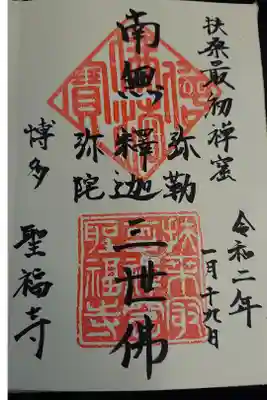 扶桑最初禅窟
令和二年
一月十九日
南無釋迦三世佛
弥勒
弥陀
博多
聖福寺
佛法僧寶
扶桑最初禅窟聖福寺